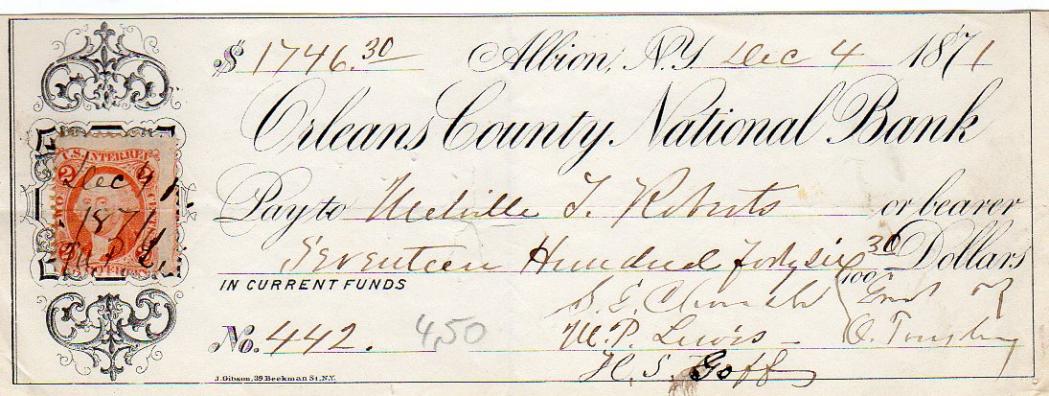 $ 1746.30 Albion, N.Y. Dec 4 1871
Orleans County National Bank
U.S. INTER. REV.
2
Dec 4
1871
Pay to Melville T. Roberts or bearer
Seventeen Hundred forty six 30/100 Dollars
IN CURRENT FUNDS
S. E. Church
No. 442. 450 M. P. Lewis
H. S. Goff
J. Gibson, 39 Beekman St, N.Y.